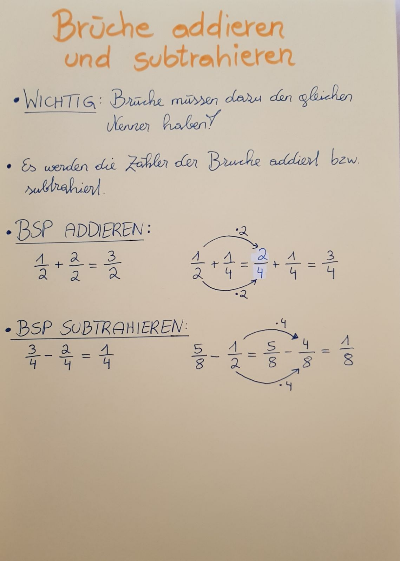 Brüche addieren
und subtrahieren
• WICHTIG: Brüche müssen dazu den gleichen
Nenner haben!
• Es werden die Zähler der Brüche addiert bzw.
subtrahiert.
• BSP ADDIEREN:
1/2 + 2/2 = 3/2
·2
1/2 + 1/4 = 2/4 + 1/4 = 3/4
·2
• BSP SUBTRAHIEREN:
3/4 - 2/4 = 1/4
·4
5/8 - 1/2 = 5/8 - 4/8 = 1/8
·4